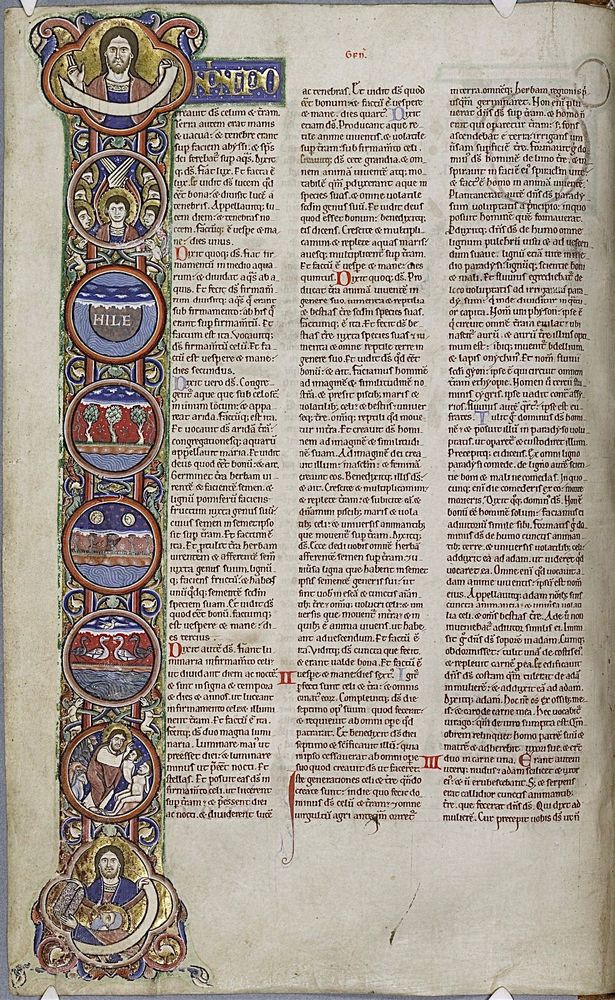 Geñ.
N PRINCIPIO
HILE
creauit ds̄ celum & t̄ram.
Terra autem erat inanis
& uacua: & tenebre erant
sup faciem abyssi: & sp̄s
dn̄i ferebat̄ sup aq̄s. Dixitq;
ds̄. Fiat lux. Et facta ē
lux. Et uidit ds̄ lucem qd̄
eēt bona: & diuisit lucē a
tenebris. Appellauitq; lu
cem diem: & tenebras no
ctem. Factūq; ē uespe & ma
ne: dies unus.
Dixit quoq; ds̄. Fiat fir
mamentū in medio aqua
rum: & diuidat aq̄s ab a
quis. Et fecit ds̄ firmam̄
tum diuisitq; aq̄s q̄ erant
sub firmamento: ab his q̄
erant sup firmam̄tū. Et
factum est ita. Vocauitq;
ds̄ firmam̄tū celū. Et fa
ctū est uespere & mane:
dies secundus.
Dixit uero ds̄. Congre
gent̄ aque que sub celo sc̄
in unum locum: & appa
reat arida. Factūq; est ita.
Et uocauit ds̄ aridā t̄rā:
congregationesq; aquarū
appellauit maria. Et uidit
deus quod eēt bonū: & ait.
Germinet t̄ra herbam ui
rentē & facientē semen: &
lignū pomiferū faciens
fructum iuxta genus suū:
cuius semen in semetipso
sit sup t̄ram. Et factum ē
ita. Et protulit t̄ra herbam
uirentem & afferentē sem̄
iuxta genus suum. lignū
q; faciens fructū: & habēs
unūqdq; sementē scdm̄
speciem suam. Et uidit ds̄
quod eēt bonū. Factumq;
est uespere & mane: di
es tercius.
Dixit autē ds̄. Fiant lu
minaria in firmam̄to celi: &
diuidant diem ac noctē:
& sint in signa & tempora
& dies & annos: ut luceant
in firmamento celi: & illumi
nent t̄ram. Et factū ē ita.
Fecitq; ds̄ duo magna lumi
naria. Luminare mai' ut
preesset diei: & luminare
min' ut p̄eēt nocti. Et
stellas. Et posuit eas ds̄ in
firmam̄to celi. ut lucerent
sup t̄ram: & p̄essent diei
ac nocti. & diuiderent lucē
ac tenebras. Et uidit ds̄ quod
eēt bonum: & factū ē uespere
& mane. dies quart'. Dixit
etiam ds̄. Producant aque rep
tile anime uiuentis: & uolatile
sup t̄ram: sub firmam̄to celi.
Creauitq; ds̄ cete grandia: & om
nem animā uiuentē atq; mo
tabilē quā p̄duxerant aque in
species suas. & omne uolatile
scdm̄ genus suū. Et uidit ds̄
quod esset bonum: benedixitq;
eis dicens. Crescite & multipli
camini. & replete aquas maris:
auesq; multiplicent̄ sup t̄ram.
Et factū ē uespe & mane: dies
quintus. Dixit quoq; ds̄. Pro
ducat t̄ra animā uiuentē in
genere suo. iumenta & reptilia
& bestias t̄re scdm̄ species suas.
Factumq; ē ita. Et fecit ds̄ be
stias t̄re iuxta species suas: iu
menta & omne reptile t̄re in
genere suo. Et uidit ds̄ qd̄ eēt
bonū: & ait. Faciamus hominē
ad imaginē & similitudinē no
strā. & presit piscib; maris: &
uolatilib; celi: & bestiis uniuer
seq; t̄re. omniq; reptili qd̄ mouet̄
in t̄ra. Et creauit ds̄ homi
nem ad imaginē & similitudi
nē suam. Ad imaginē dei crea
uit illum: masculū & feminā
creauit eos. Benedixitq; illis ds̄:
& ait. Crescite & multiplicamini:
& replete t̄ram: & subicite eā: &
dn̄amini piscib; maris & uola
tilib; celi: & uniuersis animantib;
que mouent̄ sup t̄ram. Dixitq;
ds̄. Ecce dedi uobis omnē herbā
afferentē semen sup t̄ram. & u
niuersa ligna que habent in semet
ipsis sementē generis sui: ut
sint uobis in escā & cunctis aīan
tib; t̄re: omniq; uolucri celi: & u
niuersis que mouent̄ in t̄ra: & in
quib; ē anima uiuens. ut habe
ant ad uescendum. Et factū ē
ita. Viditq; ds̄ cuncta que fecit.
& erant ualde bona. Et factū ē
II uespe & mane: dies sext'. Igit̄
pfecti sunt celi & t̄ra: & omnis
ornat' eoꝝ. Compleuitq; ds̄ die
septimo op' suum quod fecerat:
& requieuit ab omni ope qd̄
patrarat. Et benedixit ds̄ diei
septimo: & sc̄ificauit illū: quia
in ipso cessauerat ab omni ope
suo quod creauit ds̄ ut faceret.
Iste generationes celi & t̄re qn̄do
create sunt: in die quo fecit do
minus ds̄ celū & t̄ram: & omne
uirgultū agri anteqm̄ oriret̄
in terra. omnēq; herbam regionis p'
usqm̄ germinaret. Non eni plu
uerat dn̄s ds̄ sup t̄ram: & homo n̄
erat qui operaret̄ t̄ram: s; fons
ascendebat e terra: irrigans uni
uersam supficiē t̄re. Formauit ḡ do
min' ds̄ hominē de limo t̄re. & in
spirauit in faciē ei' spiraculū uite:
& fact' ē homo in animā uiuentē.
Plantauerat autē dn̄s ds̄ parady
sum uoluptatis a p̄ncipio: in quo
posuit hominē quē formauerat.
Produxitq; dn̄s ds̄ de humo omne
lignum pulchrū uisu & ad uescen
dum suaue. lignū etiā uite in me
dio paradysi: lignūq; scientie boni
& mali. Et fluui' egrediebat̄ de
loco uoluptatis ad irrigandū para
dysum: q' inde diuidit̄ in quatu
or capita. Nom̄ uni physon: ipse ē
q' circuit omnē t̄ram euilat: ubi
nascit̄ aurū: & aurū t̄re illius opti
mum est: ibiq; inuenit̄ bdellium.
& lapis onychin'. Et nom̄ fluuii
scdi gyon: ipse ē qui circuit omnem
t̄ram ethyopie. Nomen ū tercii flu
minis tygris. ipse uadit contra assy
rios. Fluuius autē q̄rt': ipse est eu
frates. Tulit ḡ dominus ds̄ homi
nē: & posuit illū in paradyso uolu
ptatis: ut opararet̄ & custodiret illum.
Precepitq; ei dicens. Ex omni ligno
paradysi comede. de ligno autē scien
tie boni & mali ne comedas. In quo
cunq; eni die comederis ex eo: morte
morieris. Dixit qq; domin' ds̄. Non ē
bonū eē hominē solum: faciam' ei
adiutoriū simile sibi. Formatis ḡ do
min' ds̄ de humo cunctis animan
tib; terre: & uniuersis uolatilib; celi:
adduxit ea ad adam. ut uideret qd̄
uocaret ea. Omne eni qd̄ uocauit a
dam anime uiuentis: ipsū est nom̄
eius. Appellauitq; adam nomib; suis
cuncta animantia: & uniuersa uola
tilia celi. & om̄s bestias t̄re. Ade ū non
inueniebat̄ adiutor similis ei. Inmi
sit ḡ dn̄s ds̄ soporē in adam. Cumq;
obdormisset: tulit unā de costis ei':
& repleuit carnē pro ea. Et edificauit
dn̄s ds̄ costam quā tulerat de adā
in mulierē: & adduxit eā ad adam.
Dixitq; adam. Hoc nc̄ os ex ossib; me
is: & caro de carne mea. Hec uocabit̄
uirago: qm̄ de uiro sumpta est. Quā
obrem relinquet homo patrē suū &
matrē: & adherebit uxori sue. & erūt
III duo in carne una. Erant autem
uterq; nudus: adam scilicet & uxor
ei': & n̄ erubescebant. S; & serpens
erat callidior cunctis animantib;
t̄re. que fecerat dn̄s ds̄. Qui dixit ad
mulierē. Cur precepit uobis ds̄ ut n̄